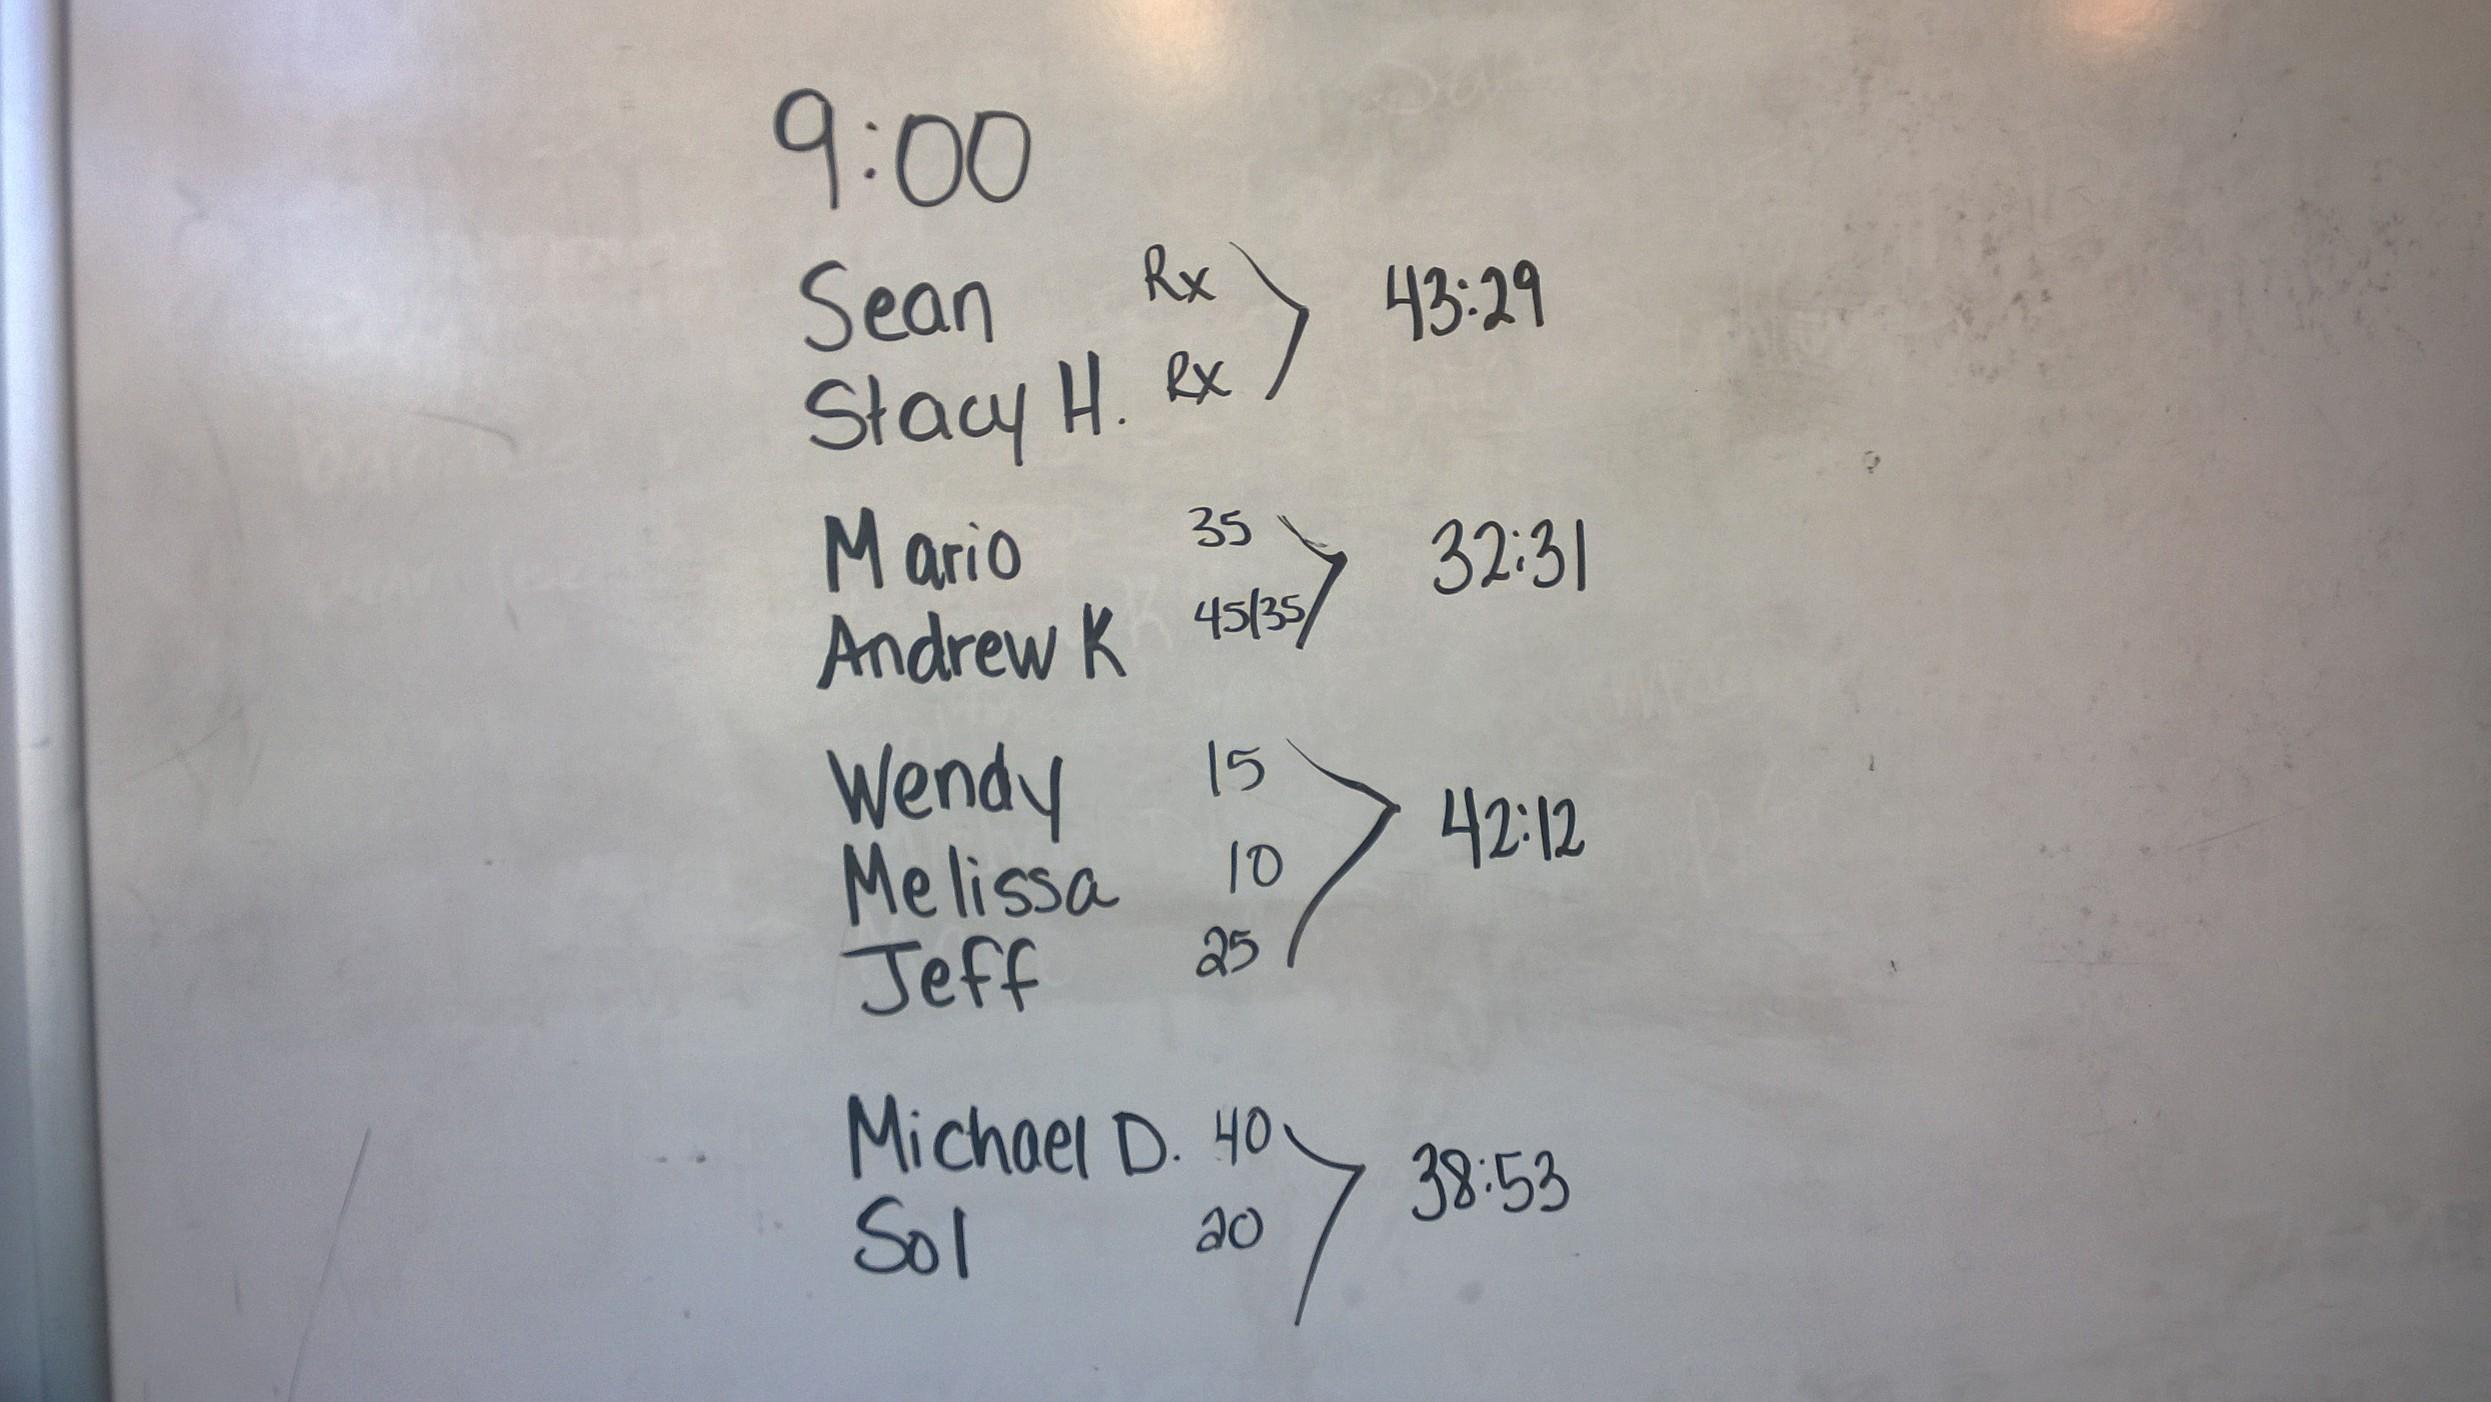 9:00
Sean Rx
43:29
Stacy H. Rx
Mario 35
32:31
Andrew K 45/35
Wendy 15
Melissa 10
42:12
Jeff 25
Michael D. 40
38:53
Sol 20